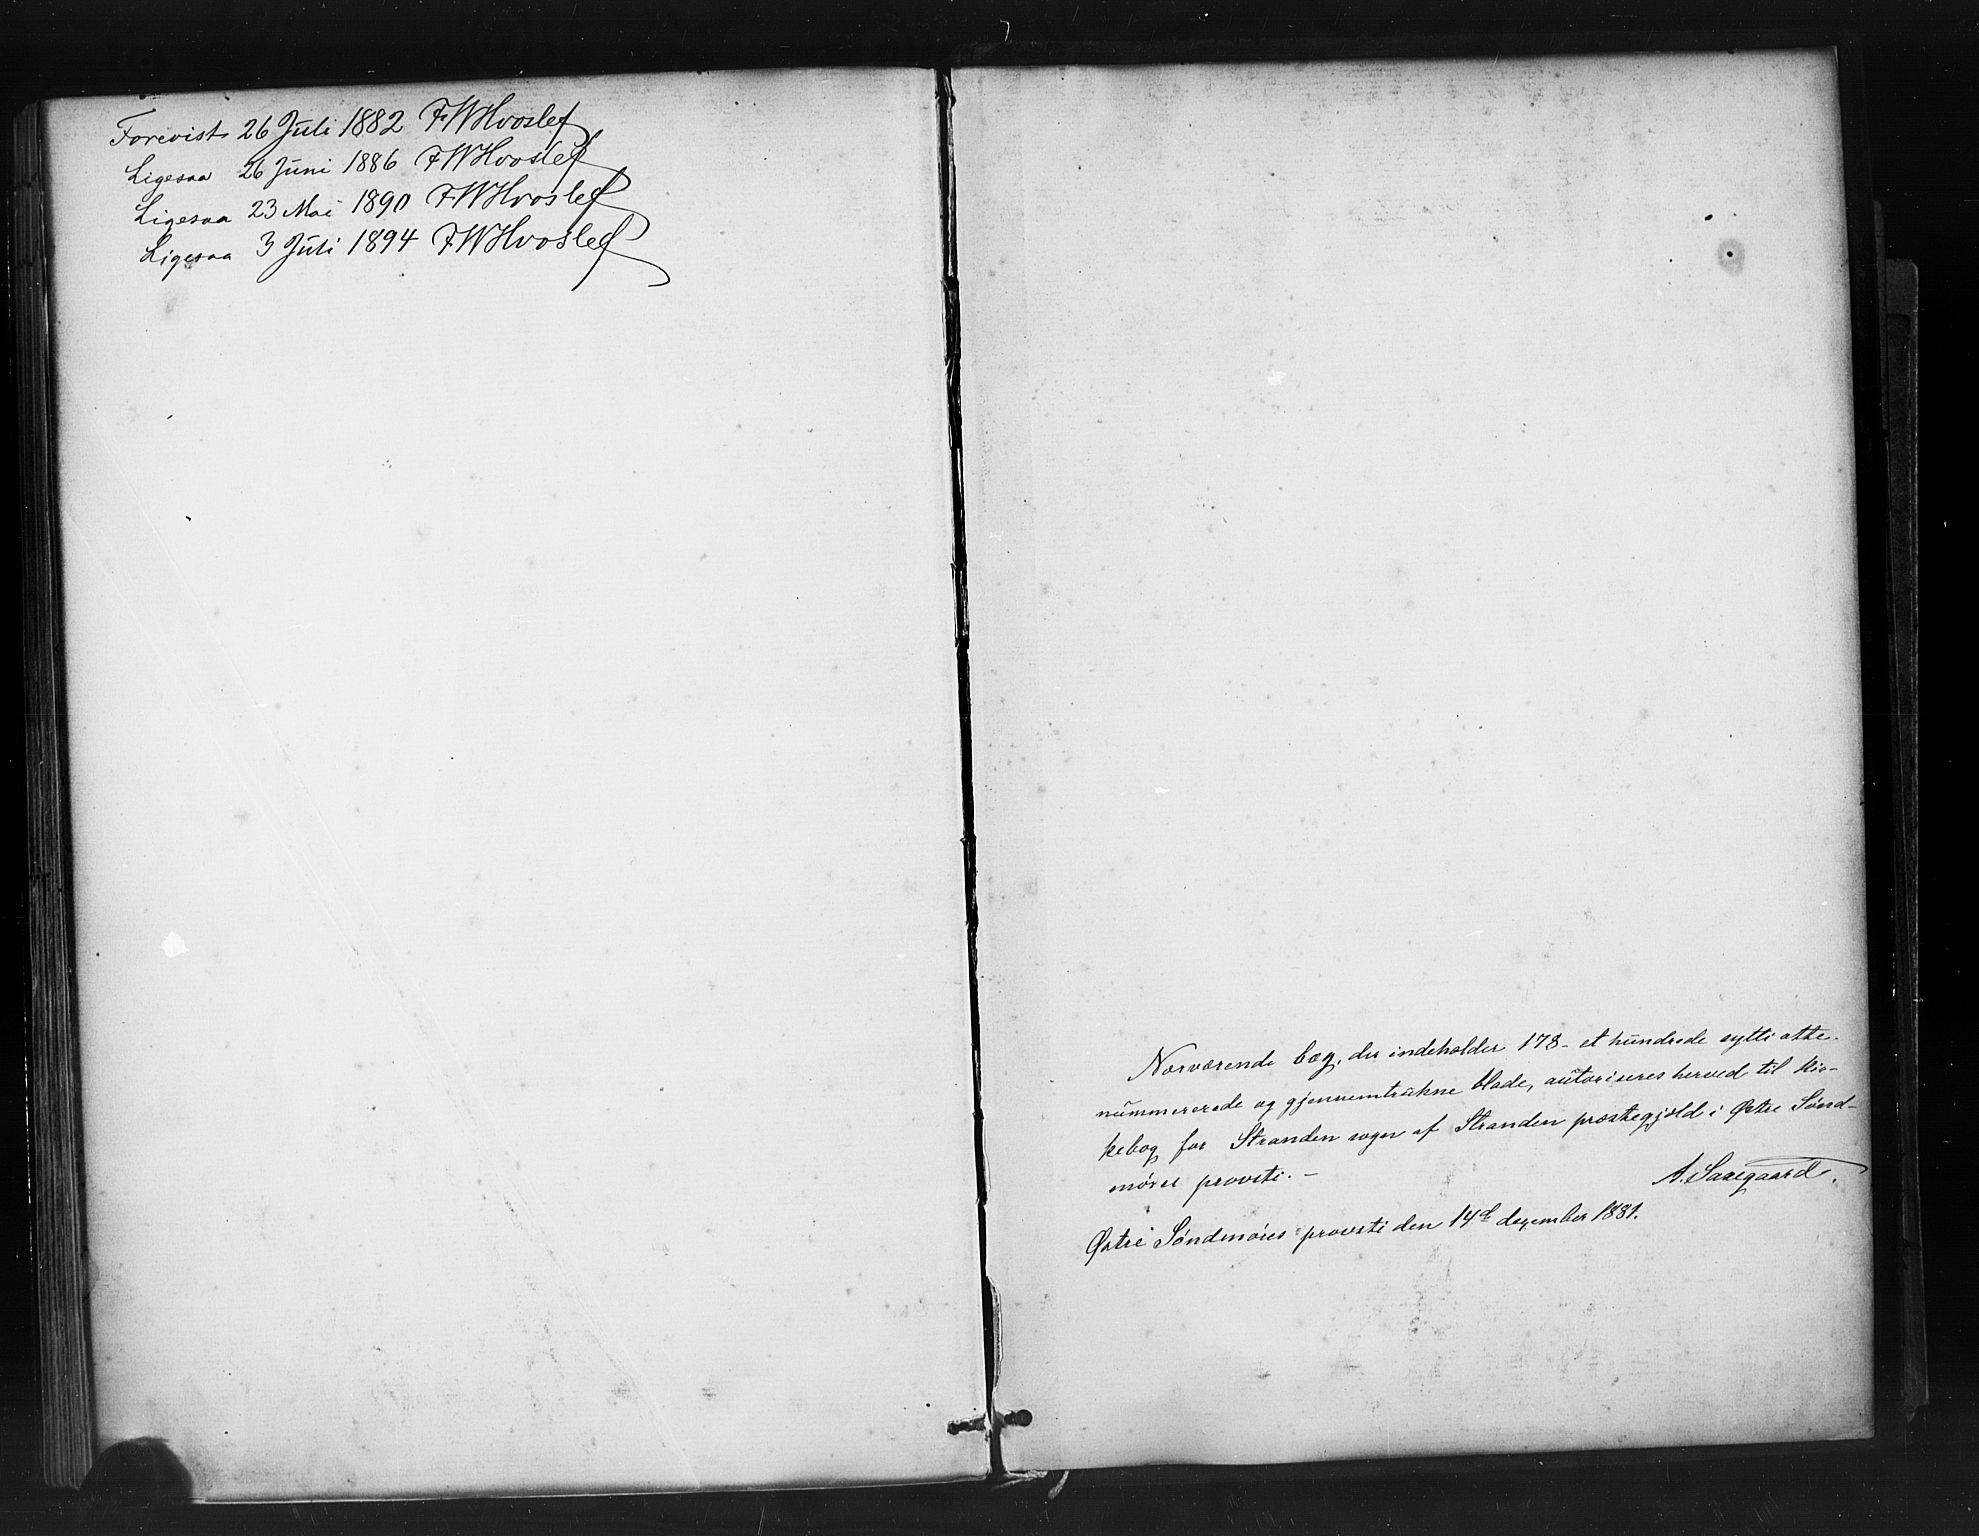 Forevist 26 Juli 1882 FWHvoslef
Ligesaa 26 Juni 1886 FWHvoslef
Ligesaa 23 Mai 1890 FWHvoslef
Ligesaa 3 Juli 1894 FWHvoslef
Nærværende bog, der indeholder 178 - et hundrede sytti otte -
nummererede og gjennemtrukne blade, autoriseres herved til kir-
kebog for Stranden sogn af Stranden præstegjæld i Østre Sønd-
møres provsti. -
A. Saxegaard.
Østre Søndmøres provsti den 14d dezember 1881.